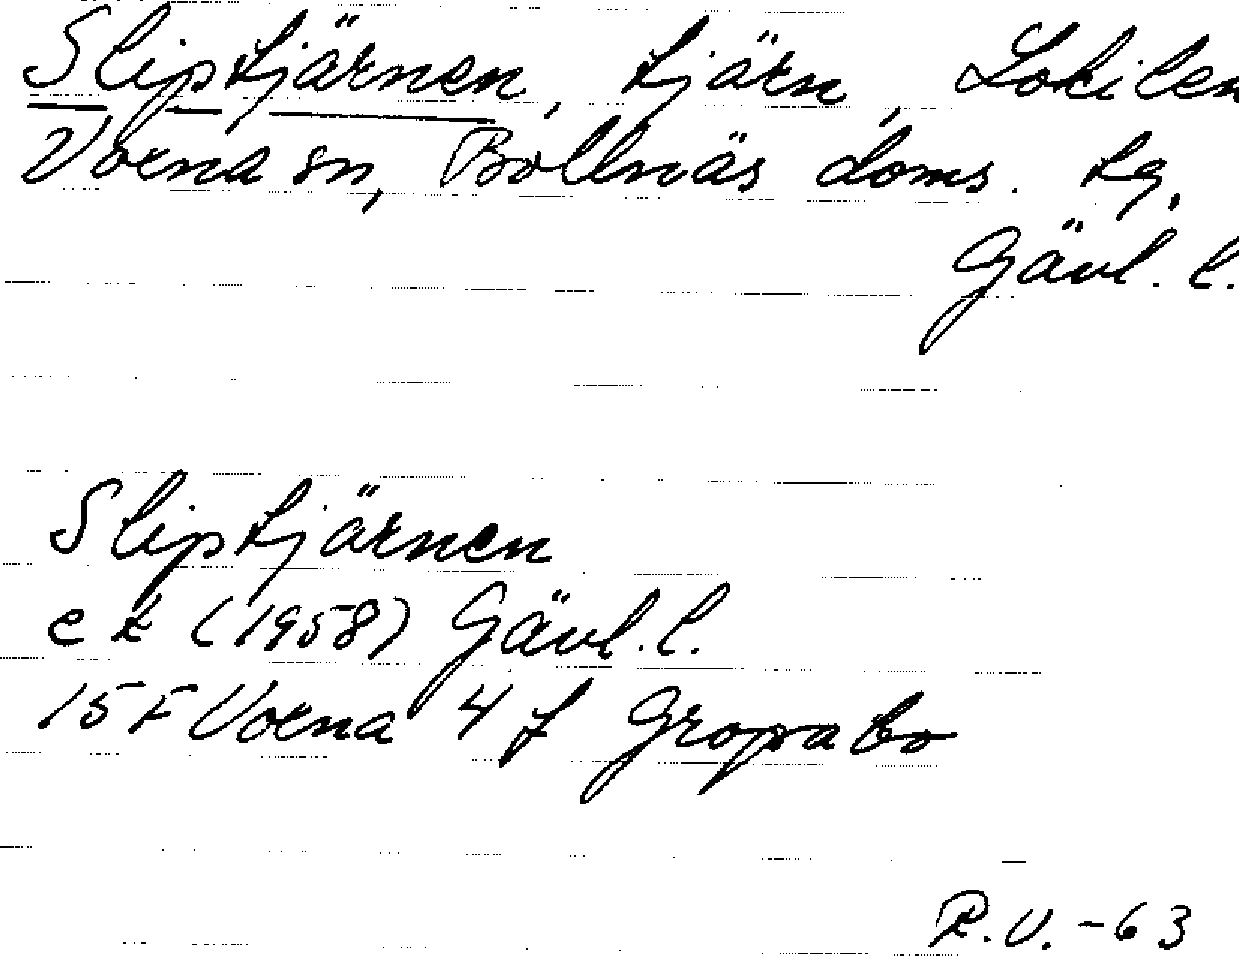 Sliptjärnen, tjärn, Lokilen
Voxna sn, Bollnäs doms. tg.
Gävl. l.
Sliptjärnen
e k (1958) Gävl. l.
15 F Voxna 4 f Gropabo
R.V. -63